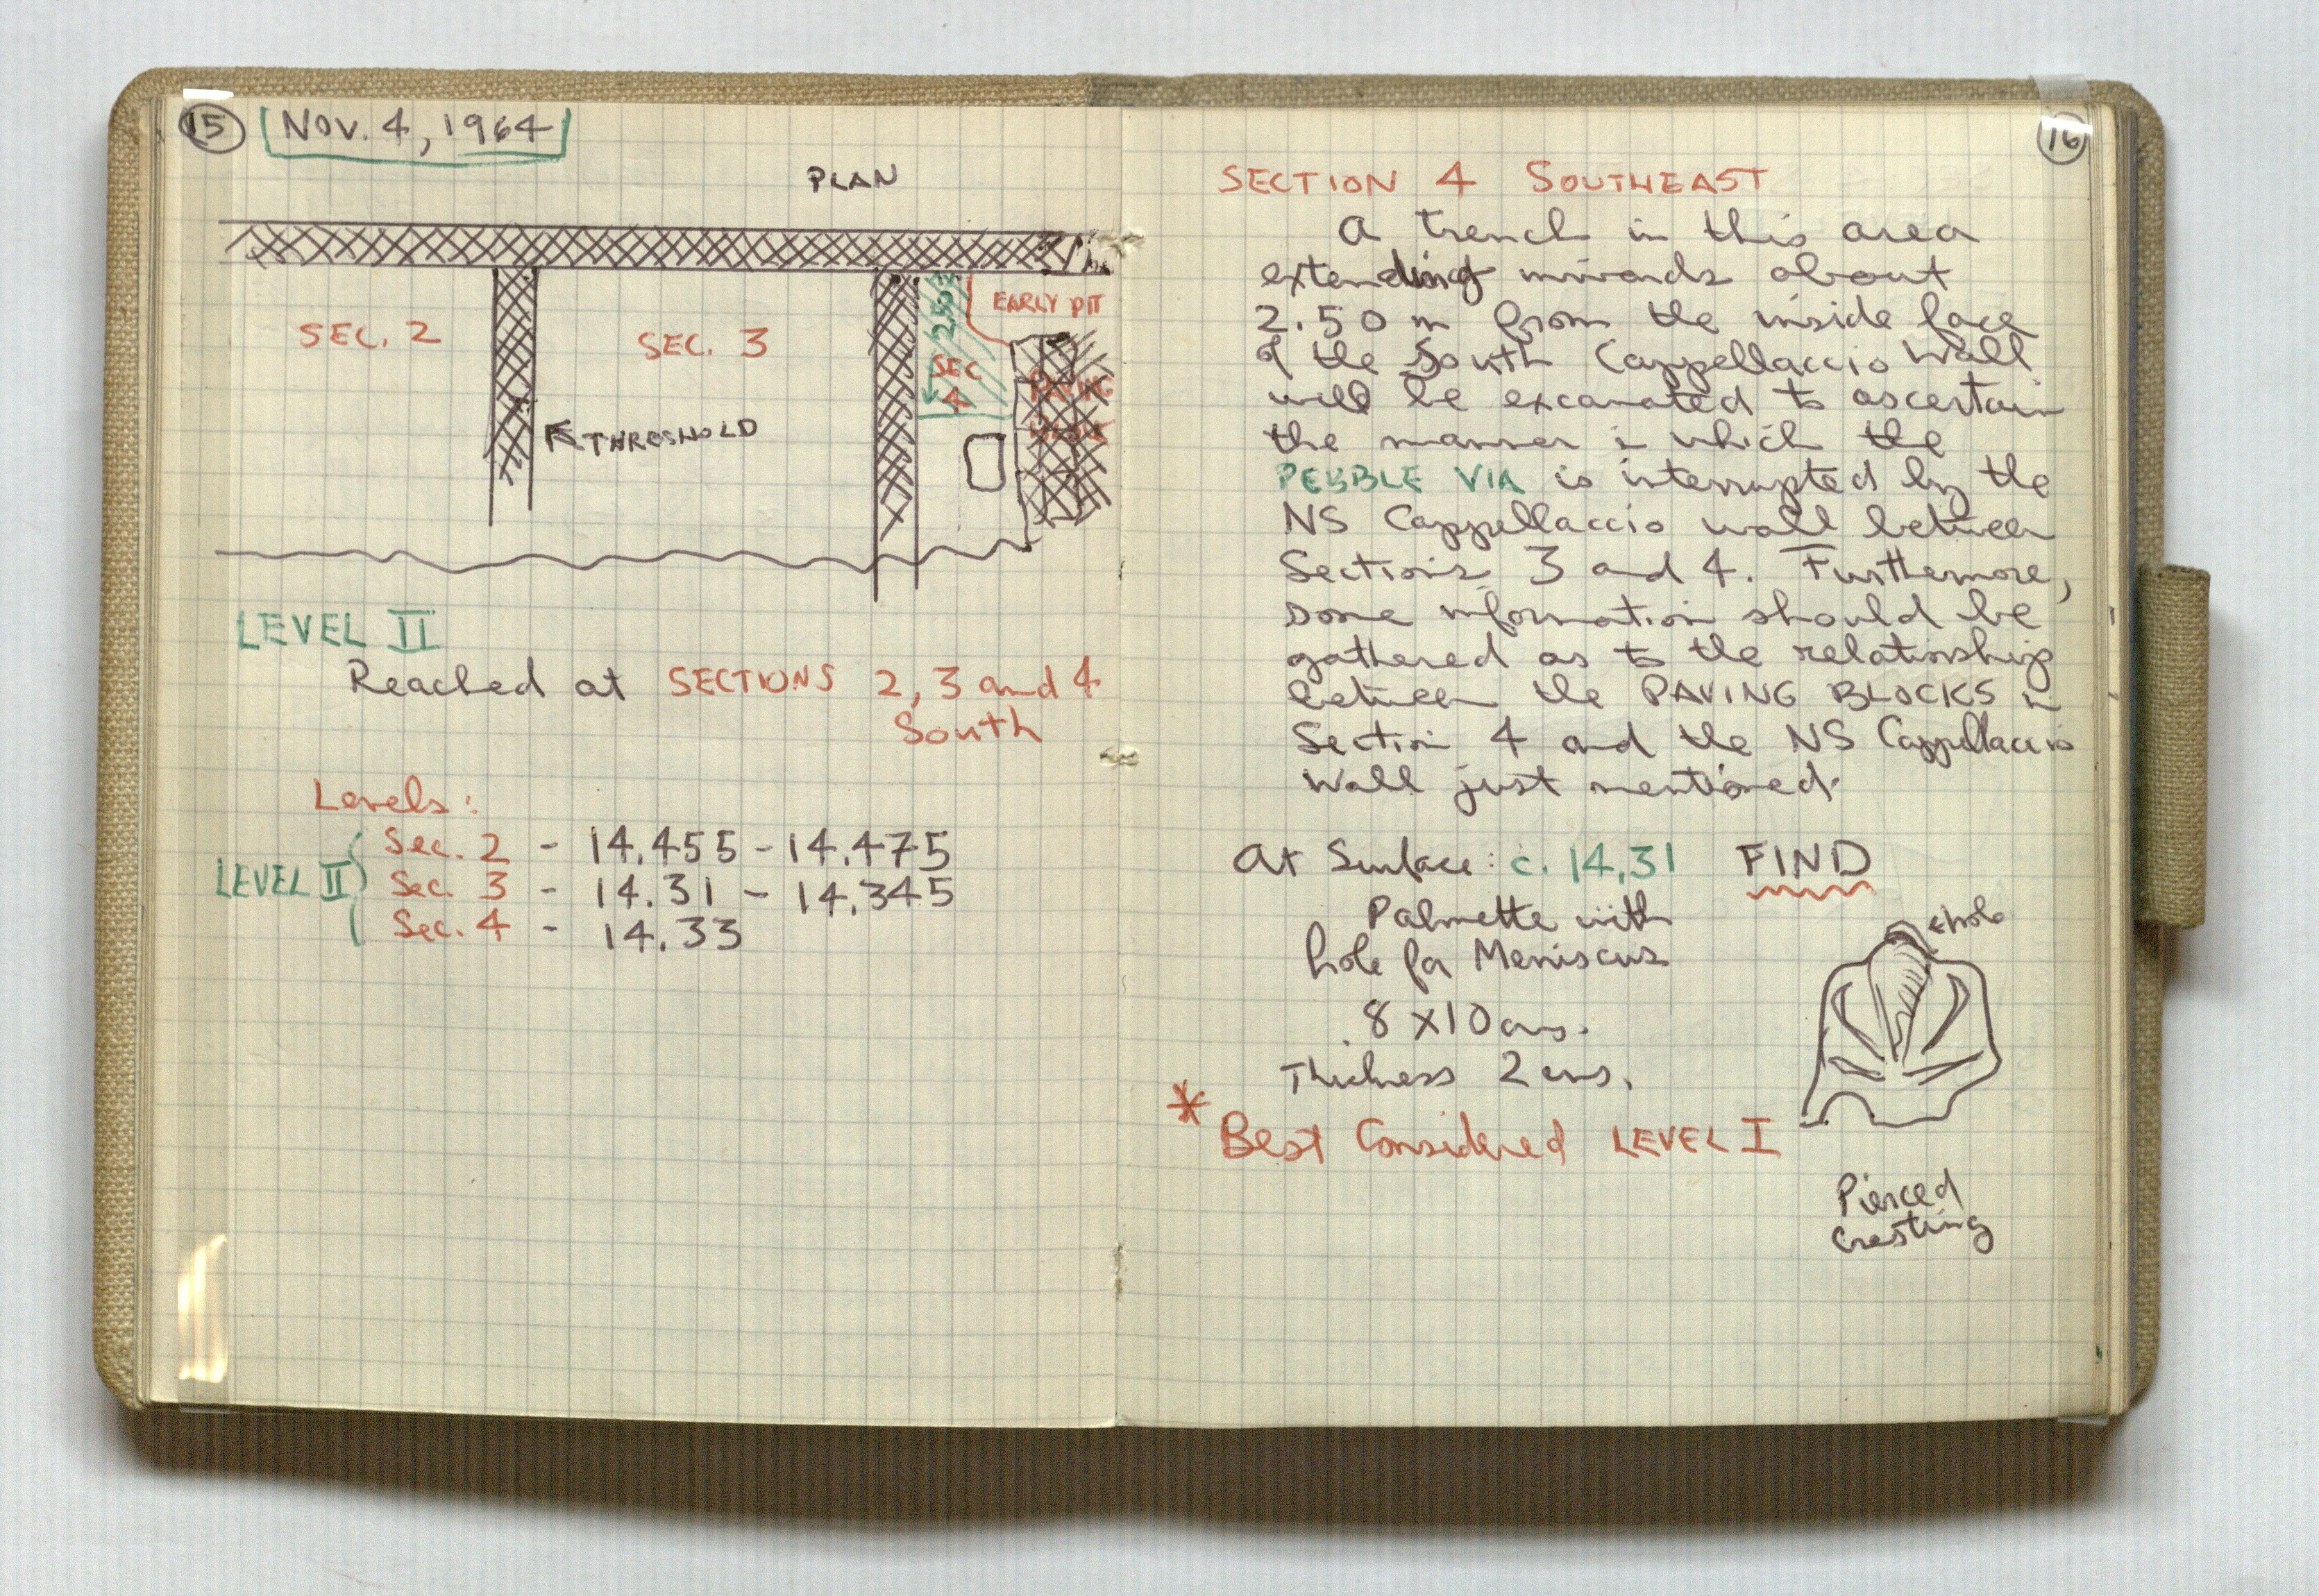 15 NOV. 4, 1964
PLAN
EARLY PIT
2.50
SEC. 2
SEC. 3
SEC
4
PAVING
THRESHOLD
LEVEL II
Reached at SECTIONS 2, 3 and 4
South
Levels:
LEVEL II
Sec. 2 - 14.455 - 14.475
Sec. 3 - 14.31 - 14.345
Sec. 4 - 14.33
16
SECTION 4 SOUTHEAST
A trench in this area
extending inwards about
2.50 m from the inside face
of the South Cappellaccio Wall
will be excavated to ascertain
the manner in which the
PEBBLE VIA is interrupted by the
NS Cappellaccio wall between
Sections 3 and 4. Furthermore,
some information should be
gathered as to the relationship
between the PAVING BLOCKS in
Section 4 and the NS Cappellaccio
Wall just mentioned.
At Surface: c. 14.31 FIND
Palmette with
hole for Meniscus
8 x 10 cms.
Thickness 2 cms.
hole
* Best Considered LEVEL I
Pierced
Cresting